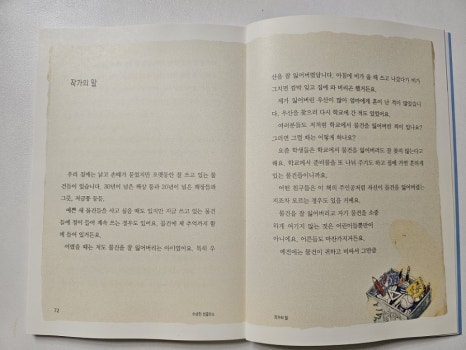 작가의 말
우리 집에는 낡고 손때가 묻었지만 오랫동안 잘 쓰고 있는 물
건들이 있습니다. 30년이 넘은 책상 등과 20년이 넘은 책장들과
그릇, 저금통 등등.
예쁜 새 물건들을 사고 싶을 때도 있지만 지금 쓰고 있는 물건
들에 정이 들어 계속 쓰는 경우도 있어요. 물건에 제 추억까지 함
께 들어 있거든요.
어렸을 때는 저도 물건을 잘 잃어버리는 아이였어요. 특히 우
12
산을 잘 잃어버렸답니다. 아침에 비가 올 때 쓰고 나갔다가 비가
그치면 깜박 잊고 집에 와 버리곤 했거든요.
제가 잃어버린 우산이 많아 엄마에게 혼이 난 적이 많았습니
다. 우산을 찾으러 다시 학교에 간 적도 있었어요.
여러분들도 저처럼 학교에서 물건을 잃어버린 적이 있나요?
그러면 그럴 때는 어떻게 하나요?
요즘 학생들은 학교에서 물건을 잃어버려도 잘 찾지 않는다고
해요. 학교에서 준비물을 또 나눠 주기도 하고 집에 가면 흔하게
있는 물건들이니까요.
어떤 친구들은 이 책의 주인공처럼 자신이 물건을 잃어버렸는
지조차 모르는 경우도 있을 거예요.
물건을 잘 잃어버리고 자기 물건을 소중
하게 여기지 않는 것은 어린이들뿐만이
아니에요. 어른들도 마찬가지거든요.
예전에는 물건이 귀하고 비싸서 그만큼
작가의 말